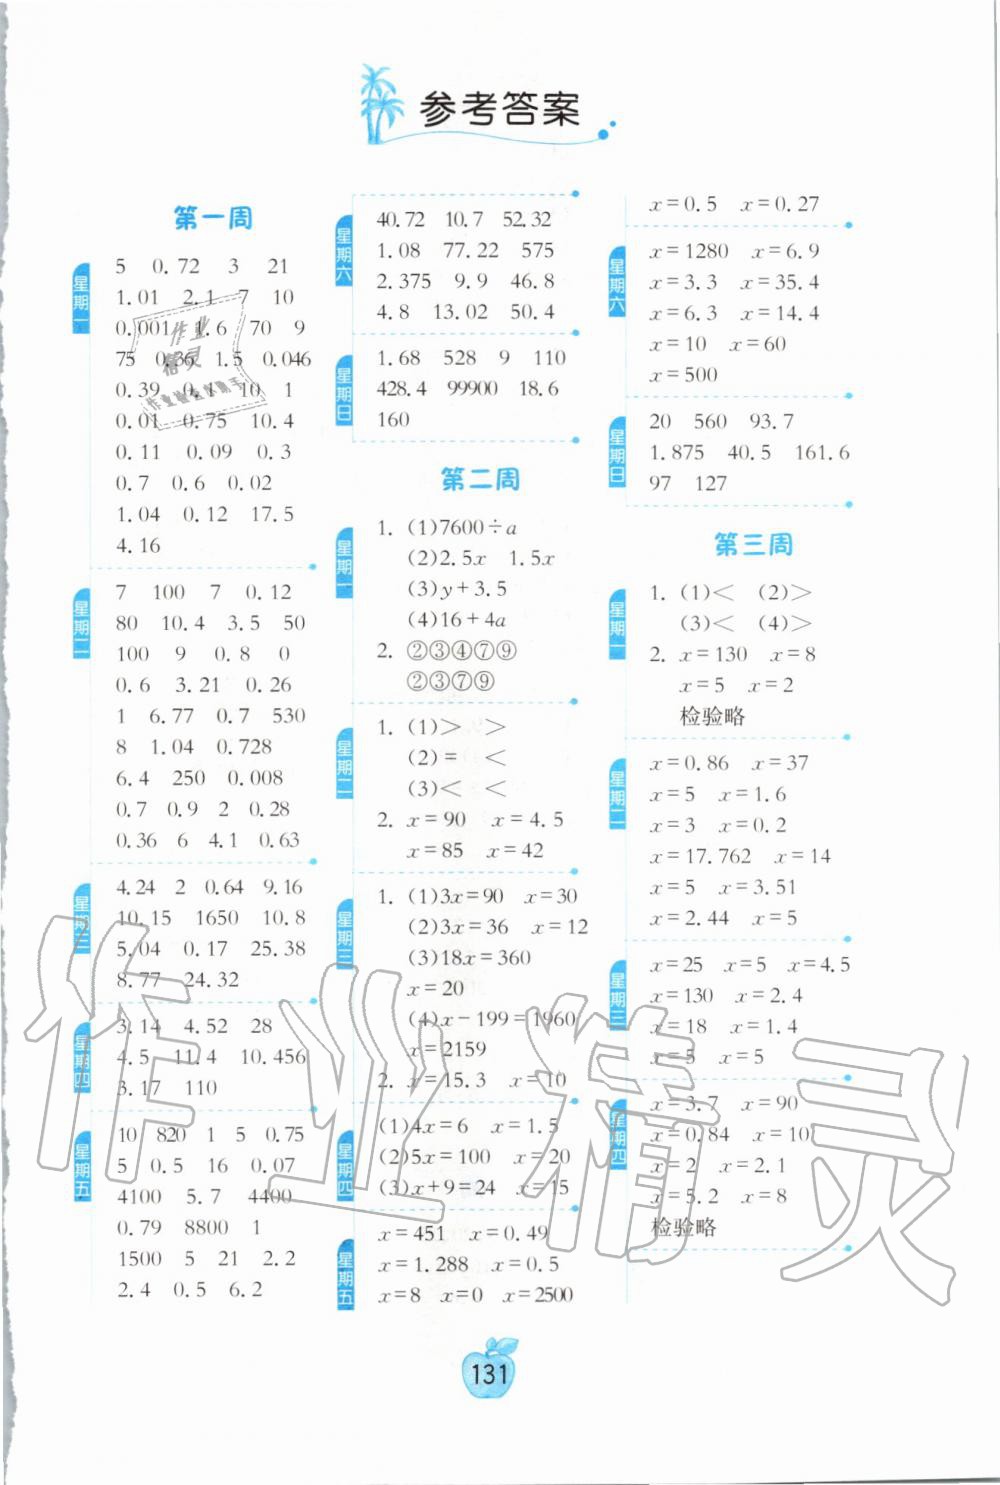 参考答案
第一周
星期一
5 0.72 3 21
1.01 2.1 7 10
0.001 1.6 70 9
75 0.36 1.5 0.046
0.39 0.1 10 1
0.01 0.75 10.4
0.11 0.09 0.3
0.7 0.6 0.02
1.04 0.12 17.5
4.16
星期二
7 100 7 0.12
80 10.4 3.5 50
100 9 0.8 0
0.6 3.21 0.26
1 6.77 0.7 530
8 1.04 0.728
6.4 250 0.008
0.7 0.9 2 0.28
0.36 6 4.1 0.63
星期三
4.24 2 0.64 9.16
10.15 1650 10.8
5.04 0.17 25.38
8.77 24.32
星期四
3.14 4.52 28
4.5 11.4 10.456
3.17 110
星期五
10 820 1 5 0.75
5 0.5 16 0.07
4100 5.7 4400
0.79 8800 1
1500 5 21 2.2
2.4 0.5 6.2
星期六
40.72 10.7 52.32
1.08 77.22 575
2.375 9.9 46.8
4.8 13.02 50.4
星期日
1.68 528 9 110
428.4 99900 18.6
160
第二周
星期一
1. (1)7600÷a
(2)2.5x 1.5x
(3)y+3.5
(4)16+4a
2. ②③④⑦⑨
②③⑦⑨
星期二
1. (1)> >
(2)= <
(3)< <
2. x=90 x=4.5
x=85 x=42
星期三
1. (1)3x=90 x=30
(2)3x=36 x=12
(3)18x=360
x=20
(4)x-199=1960
x=2159
2. x=15.3 x=10
星期四
(1)4x=6 x=1.5
(2)5x=100 x=20
(3)x+9=24 x=15
星期五
x=451 x=0.49
x=1.288 x=0.5
x=8 x=0 x=2500
x=0.5 x=0.27
星期六
x=1280 x=6.9
x=3.3 x=35.4
x=6.3 x=14.4
x=10 x=60
x=500
星期日
20 560 93.7
1.875 40.5 161.6
97 127
第三周
星期一
1. (1)< (2)>
(3)< (4)>
2. x=130 x=8
x=5 x=2
检验略
星期二
x=0.86 x=37
x=5 x=1.6
x=3 x=0.2
x=17.762 x=14
x=5 x=3.51
x=2.44 x=5
星期三
x=25 x=5 x=4.5
x=130 x=2.4
x=18 x=1.4
x=5 x=5
星期四
x=3.7 x=90
x=0.84 x=10
x=2 x=2.1
x=5.2 x=8
检验略
131
作业精灵
作业
精灵